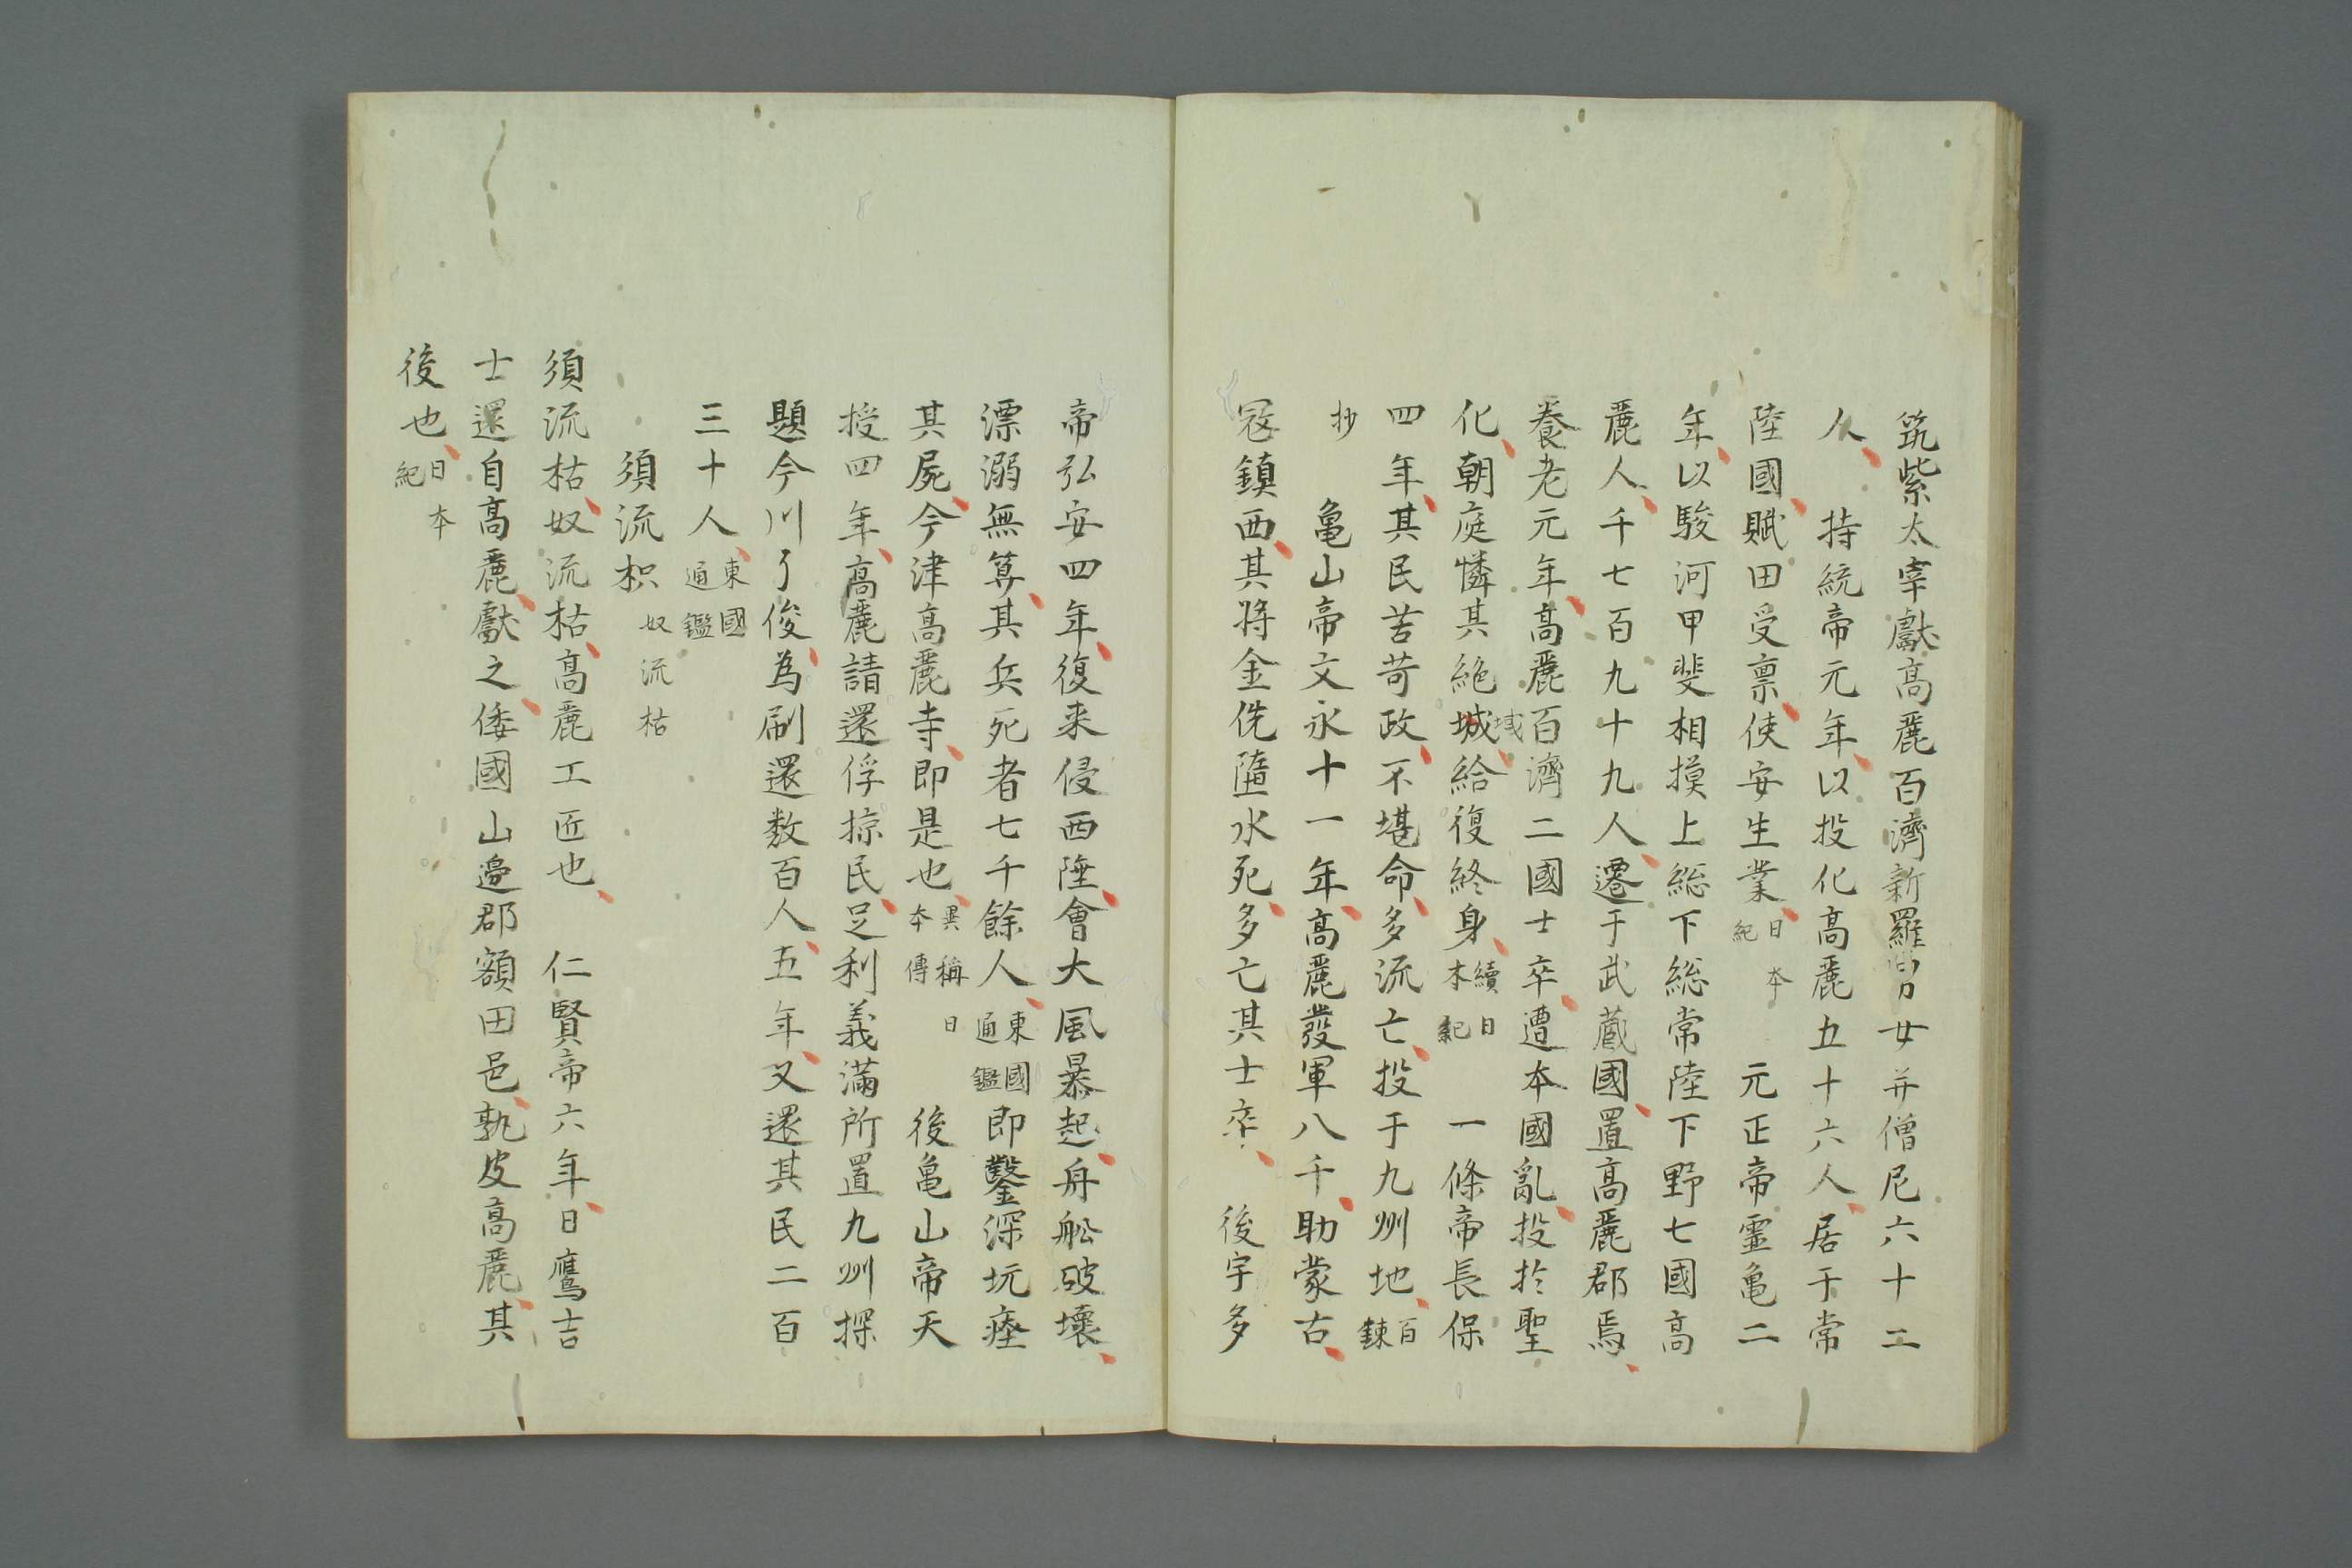 筑紫太宰獻高麗百濟新羅男女并僧尼六十二
人　持統帝元年以投化高麗五十六人居于常
陸國賦田受禀使安生業日本紀　元正帝靈亀二
年以駿河甲斐相摸上総下総常陸下野七國高
麗人千七百九十九人遷于武蔵國置高麗郡焉
養老元年高麗百濟二國士卒遭本國亂投於聖
化朝庭憐其絶城域給復終身續日本紀　一條帝長保
四年其民苦苛政不堪命多流亡投于九州地百錬
抄　亀山帝文永十一年高麗發軍八千助蒙古
冦鎮西其将金侁隨水死多亡其士卒　後宇多
帝弘安四年復来侵西陲會大風暴起舟舩破壊
漂溺無算其兵死者七千餘人東國通鑑即鑿深坑瘞
其屍今津高麗寺即是也異稱日本傳　後亀山帝天
授四年高麗請還俘掠民足利義滿所置九州探
題今川了俊為刷還数百人五年又還其民二百
三十人東國通鑑
須流枳　奴流枯
須流枯奴流枯高麗工匠也　仁賢帝六年日鷹吉
士還自高麗獻之倭國山邉郡額田邑熟皮高麗其
後也日本紀